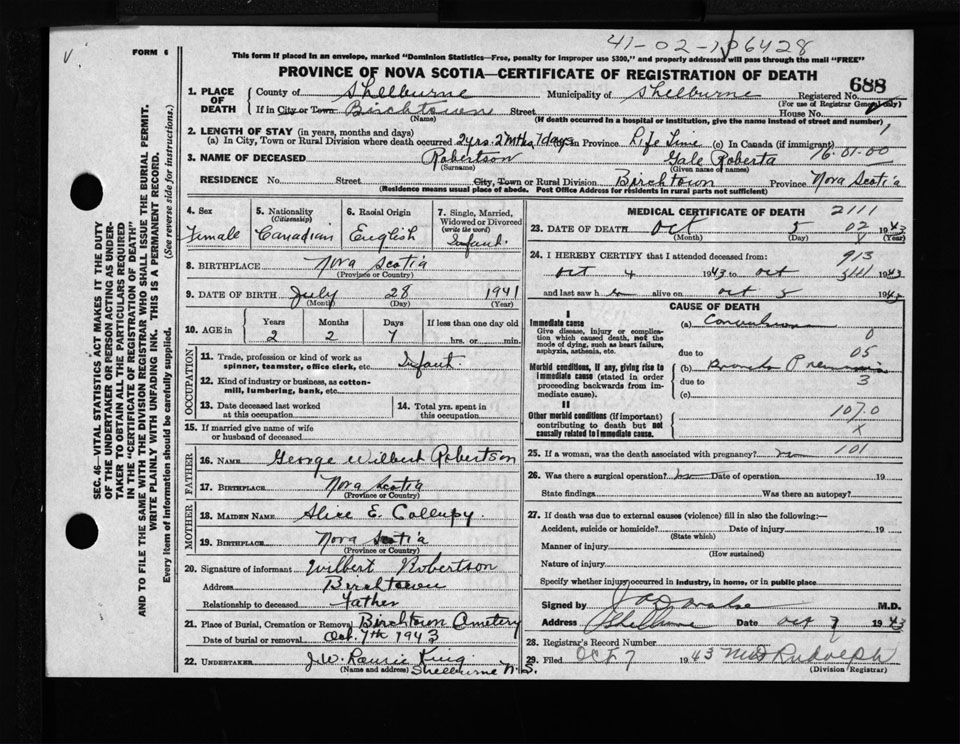 41-02-106428
FORM 6
This form if placed in an envelope, marked "Dominion Statistics—Free, penalty for improper use $300," and properly addressed will pass through the mail "FREE"
PROVINCE OF NOVA SCOTIA—CERTIFICATE OF REGISTRATION OF DEATH
688
1. PLACE OF DEATH
County of Shelburne Municipality of Shelburne Registered No.
(For use of Registrar General only)
If in City or Town Birchtown Street House No.
(Name) (If death occurred in a hospital or institution, give the name instead of street and number)
2. LENGTH OF STAY (in years, months and days)
(a) In City, Town or Rural Division where death occurred 2 yrs. 2 Mths 7 days In Province Life Time (c) In Canada (if immigrant)
3. NAME OF DECEASED Robertson Gale Roberta 76-01-00
(Surname) (Given name or names)
RESIDENCE No. Street City, Town or Rural Division Birchtown Province Nova Scotia
(Residence means usual place of abode. Post Office Address for residents in rural parts not sufficient)
4. Sex
Female
5. Nationality
(Citizenship)
Canadian
6. Racial Origin
English
7. Single, Married, Widowed or Divorced
(write the word)
Infant
8. BIRTHPLACE Nova Scotia
(Province or Country)
9. DATE OF BIRTH July 28 1941
(Month) (Day) (Year)
10. AGE in
Years Months Days If less than one day old
2 2 7 hrs. or min.
OCCUPATION
11. Trade, profession or kind of work as
spinner, teamster, office clerk, etc. Infant.
12. Kind of industry or business, as cotton-
mill, lumbering, bank, etc.
13. Date deceased last worked
at this occupation
14. Total yrs. spent in
this occupation.
15. If married give name of wife
or husband of deceased
FATHER
16. NAME George Wilbert Robertson
17. BIRTHPLACE Nova Scotia
(Province or Country)
MOTHER
18. MAIDEN NAME Alice E. Collupy.
19. BIRTHPLACE Nova Scotia
(Province or Country)
20. Signature of informant Wilbert Robertson
Address Birchtown
Relationship to deceased Father
21. Place of Burial, Cremation or Removal Birchtown Cemetery
Date of burial or removal Oct. 7th 1943
22. UNDERTAKER J. W. King
(Name and address) Shelburne N.S.
MEDICAL CERTIFICATE OF DEATH 2111
23. DATE OF DEATH Oct 5 02 1943
(Month) (Day) (Year)
24. I HEREBY CERTIFY that I attended deceased from: 913
Oct 4 1943 to Oct 1943
and last saw h alive on Oct 5 1943
CAUSE OF DEATH
I
Immediate cause
Give disease, injury or complica-
tion which caused death, not the
mode of dying, such as heart failure,
asphyxia, asthenia, etc.
(a) Convulsions
0
due to 05
Morbid conditions, if any, giving rise to
immediate cause (stated in order
proceeding backwards from im-
mediate cause).
(b) Broncho Pneumonia
due to 3
(c)
II
Other morbid conditions (if important)
contributing to death but not
causally related to immediate cause.
107.0
X
25. If a woman, was the death associated with pregnancy? no 101
26. Was there a surgical operation? no Date of operation 19
State findings Was there an autopsy?
27. If death was due to external causes (violence) fill in also the following:—
Accident, suicide or homicide? Date of injury 19
(State which)
Manner of injury
(How sustained)
Nature of injury
Specify whether injury occurred in industry, in home, or in public place
Signed by M.D.
Address Shelburne Date Oct 7 1943
28. Registrar's Record Number
29. Filed Oct 7 1943 Rudolph
(Division Registrar)
SEC. 46—VITAL STATISTICS ACT MAKES IT THE DUTY
OF THE UNDERTAKER OR PERSON ACTING AS UNDER-
TAKER TO OBTAIN ALL THE PARTICULARS REQUIRED
IN THE "CERTIFICATE OF REGISTRATION OF DEATH"
AND TO FILE THE SAME WITH THE DIVISION REGISTRAR WHO SHALL ISSUE THE BURIAL PERMIT.
WRITE PLAINLY WITH UNFADING INK. THIS IS A PERMANENT RECORD.
Every item of information should be carefully supplied. (See reverse side for instructions.)